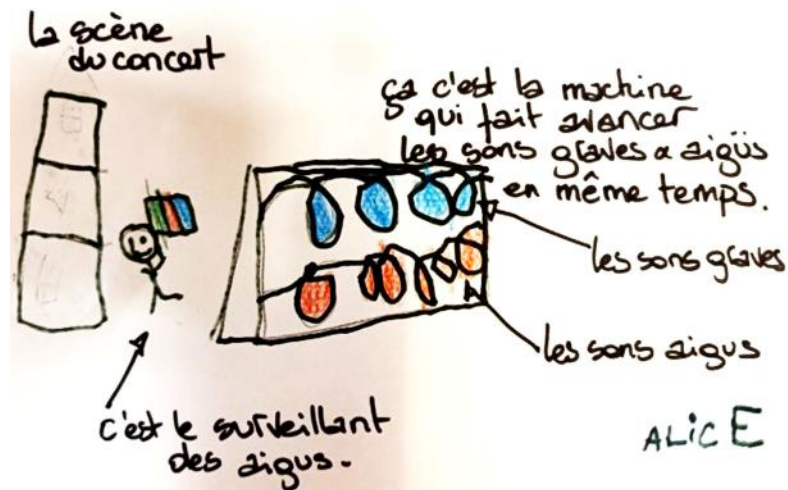 la scène
du concert
ça c'est la machine
qui fait avancer
les sons graves & aigüs
en même temps.
les sons graves
les sons aigus
c'est le surveillant
des aigus.
ALicE